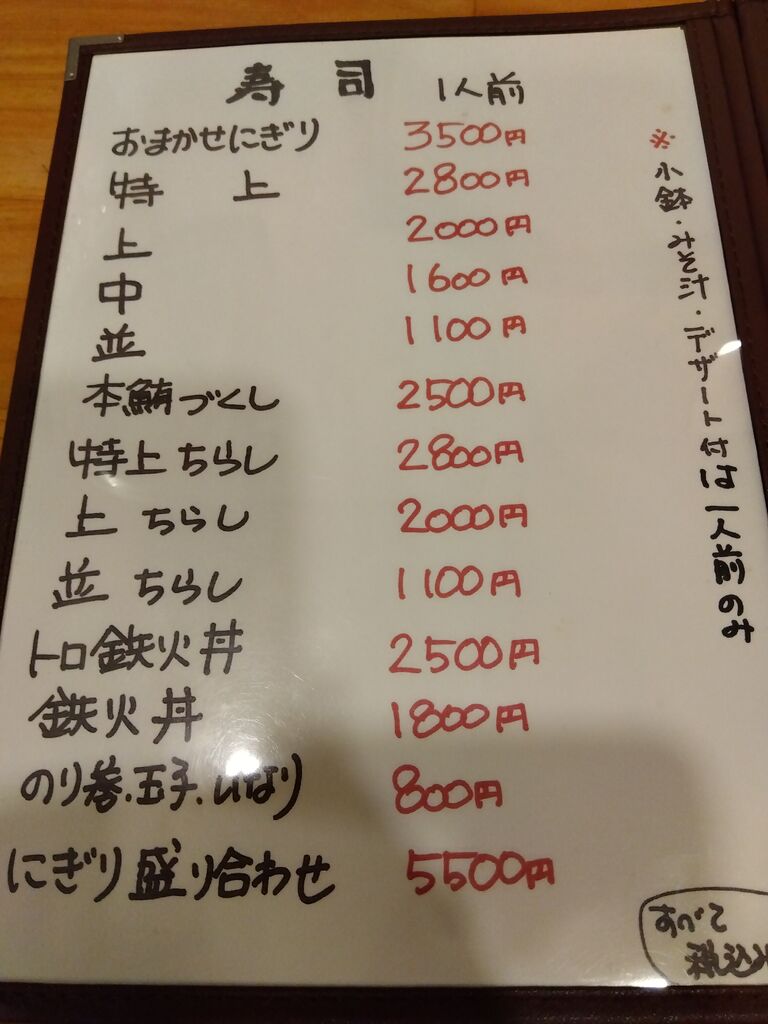 寿司 1人前
おまかせにぎり 3500円
特上 2800円
上 2000円
中 1600円
並 1100円
本鮪づくし 2500円
特上ちらし 2800円
上ちらし 2000円
並ちらし 1100円
トロ鉄火丼 2500円
鉄火丼 1800円
のり巻・玉子・いなり 800円
にぎり盛り合わせ 5500円
※小鉢・みそ汁・デザート付は一人前のみ
すべて
税込み